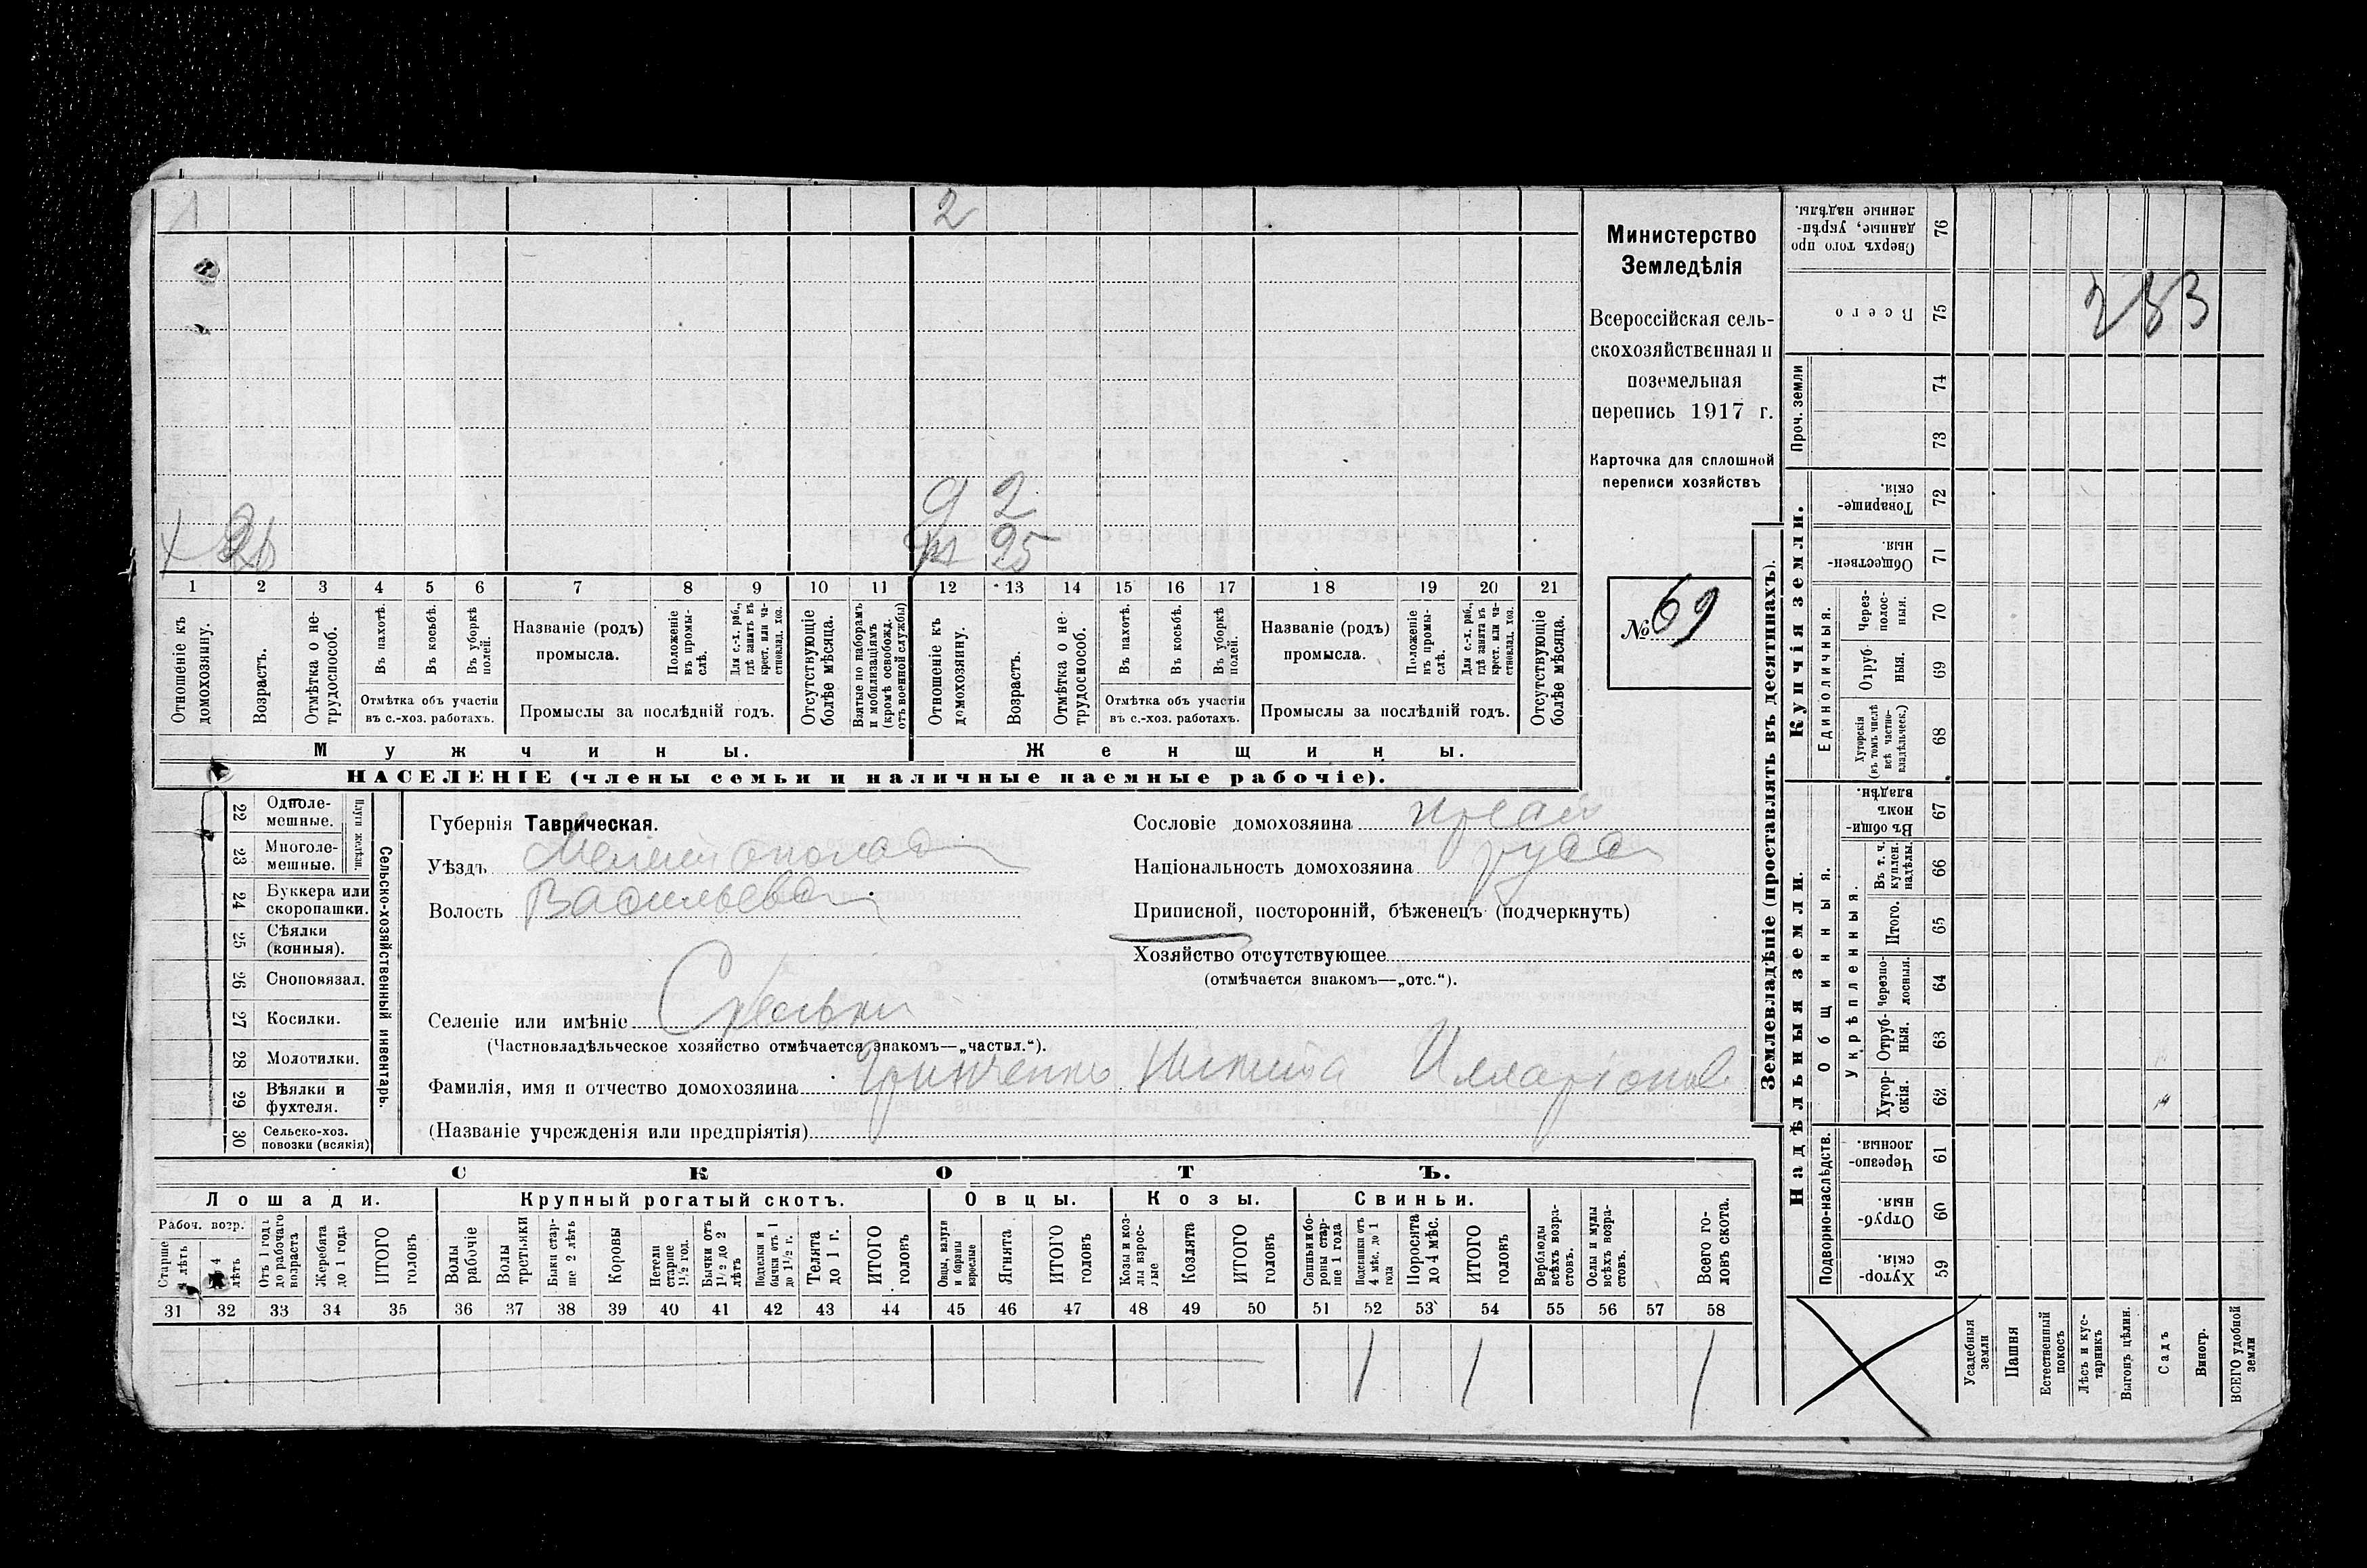 1 2
д 2
х 26 ж 25
1 2 3 4 5 6 7 8 9 10 11 12 13 14 15 16 17 18 19 20 21
Отношеніе къ домохозяину.
Возрастъ.
Отмѣтка о не-трудоспособ.
Въ пахотѣ.
Въ косьбѣ.
Въ уборкѣ полей.
Отмѣтка объ участіи
въ с.-хоз. работахъ.
Названіе (родъ)
промысла.
Положеніе въ промы-слѣ.
Для с.-х. раб., гдѣ занятъ въ крест. или ча-стновлад. хоз.
Промыслы за послѣдній годъ.
Отсутствующіе болѣе мѣсяца.
Взятые по наборамъ и мобилизаціямъ (кромѣ освобожд. отъ военной службы)
Отношеніе къ домохозяину.
Возрастъ.
Отмѣтка о не-трудоспособ.
Въ пахотѣ.
Въ косьбѣ.
Въ уборкѣ полей.
Отмѣтка объ участіи
въ с.-хоз. работахъ.
Названіе (родъ)
промысла.
Положеніе въ промы-слѣ.
Для с.-х. раб., гдѣ занята въ крест. или ча-стновлад. хоз.
Промыслы за послѣдній годъ.
Отсутствующіе болѣе мѣсяца.
Мужчины. Женщины.
НАСЕЛЕНІЕ (члены семьи и наличные наемные рабочіе).
Министерство
Земледѣлія
Всероссійская сель-
скохозяйственная и
поземельная
перепись 1917 г.
Карточка для сплошной
переписи хозяйствъ
№ 69
22 Одноле-мешные.
23 Многоле-мешные.
Плуги желѣзн.
24 Буккера или скоропашки.
25 Сѣялки (конныя).
26 Сноповязал.
27 Косилки.
28 Молотилки.
29 Вѣялки и фухтеля.
30 Сельско-хоз. повозки (всякія)
Сельско-хозяйственный инвентарь.
Губернія Таврическая.
Уѣздъ Мелитопольс
Волость Васильевс
Селеніе или имѣніе
(Частновладѣльческое хозяйство отмѣчается знакомъ—„частвл.“).
Фамилія, имя и отчество домохозяина Гринченко Никита Илларіонов
(Названіе учрежденія или предпріятія)
Сословіе домохозяина
Національность домохозяина русс
Приписной, посторонній, бѣженецъ (подчеркнуть)
Хозяйство отсутствующее
(отмѣчается знакомъ—„отс.“).
СКОТЪ.
Лошади. Крупный рогатый скотъ. Овцы. Козы. Свиньи.
Рабоч. возр.
Старше 4 лѣтъ
До 4 лѣтъ
Отъ 1 года до рабочаго возраста
Жеребята до 1 года
ИТОГО головъ
Волы рабочіе
Волы третьяки
Быки стар-ше 2 лѣтъ
Коровы
Нетели старше 1½ год.
Бычки отъ 1½ до 2 лѣтъ
Подтелки и бычки отъ 1 до 1½ г.
Телята до 1 г.
ИТОГО головъ
Овцы, валухи и бараны взрослые
Ягнята
ИТОГО головъ
Козы и коз-лы взрос-лые
Козлята
ИТОГО головъ
Свиньи и бо-ровы стар-ше 1 года
Подсвинки отъ 4 мѣс. до 1 года
Поросята до 4 мѣс.
ИТОГО головъ
Верблюды всѣхъ возра-стовъ.
Ослы и мулы всѣхъ возра-стовъ.
Всего го-ловъ скота.
31 32 33 34 35 36 37 38 39 40 41 42 43 44 45 46 47 48 49 50 51 52 53 54 55 56 57 58
1 1 1
Землевладѣніе (проставлять въ десятинахъ).
Надѣльныя земли.
Купчія земли.
Проч. земли
Подворно-наслѣдств.
Общинныя.
Укрѣпленныя.
Единоличныя.
Сверхъ того про данные, укрѣп-ленные надѣлы. 76
Всего 75
74
73
Товарище-скія. 72
Обществен-ныя. 71
Через-полос-ныя. 70
Отруб-ныя. 69
Хуторскія (въ томъ числѣ всѣ частно-владѣльческ.) 68
Въ общи-номъ владѣн. 67
Въ т. ч. куплен. надѣлы. 66
Итого. 65
Черезпо-лосныя. 64
Отруб-ныя. 63
Хутор-скія. 62
Черезпо-лосныя. 61
Отруб-ныя. 60
Хутор-скія. 59
Усадебныя земли
Пашня
Естественный покосъ
Лѣсъ и кус-тарникъ
Выгонъ цѣлин.
Садъ
Виногр.
ВСЕГО удобной земли